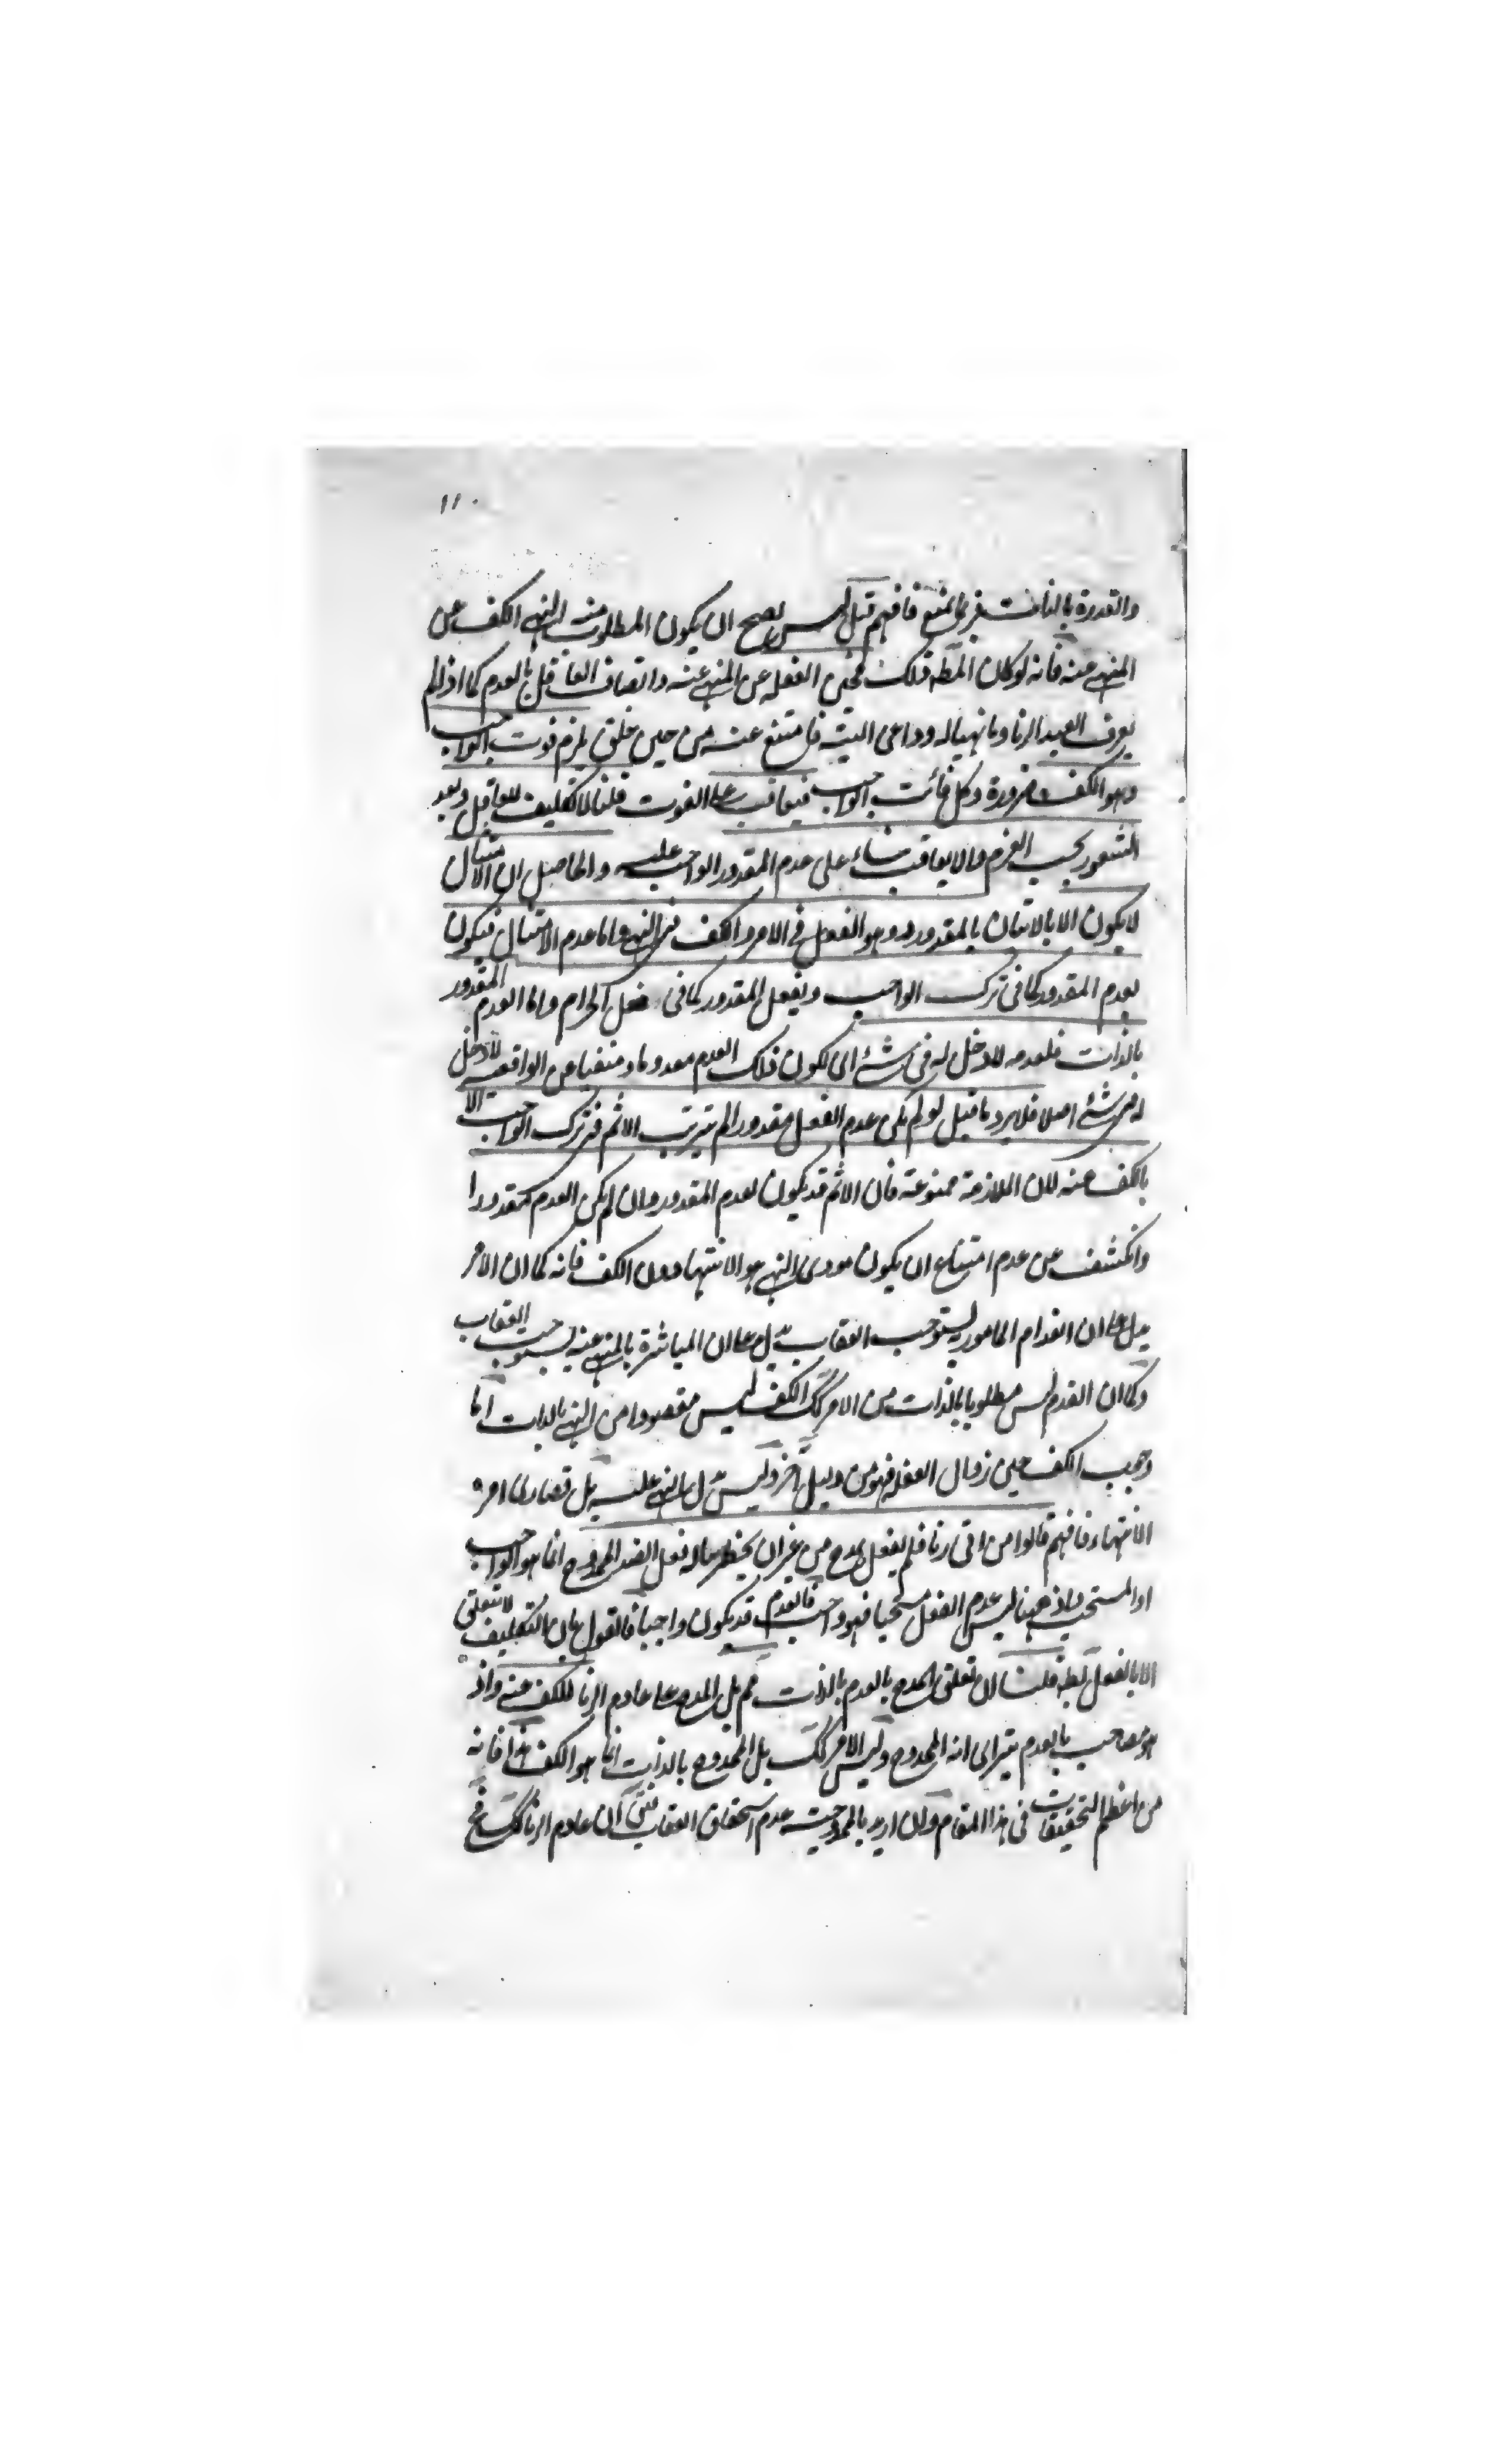 ١١٠
والقدرة بالذات فيما يمنع فافهم قيل ليس يصح ان يكون المطلوب منه النهي الكف عن
المنهي عنه فانه لو كان المطـ ذلك فحين الغفلة عن المنهي عنه واتصاف الغافل بالعدم كما اذا لم
يعرف العبد الزنا وما نهياله وداعى اليته فامتنع عنه من حين خلق يلزم فوت الواجب
وهو الكف ضرورة وكل فائت الواجب فيعاقب على الفوت قلنا لا تكليف للغافل وبعد
الشعور يجب العزم والا يعاقب بناء على عدم المقدور الواجب عليه والحاصل ان الامتثال
لا يكون الا بالاتيان بالمقدور وهو الفعل في الامر والكف في النهي واما عدم الامتثال فيكون
بعدم المقدور كما في ترك الواجب وبفعل المقدور كما في فعل الحرام واما العدم المقدور
بالذات فلعدمه لا دخل له في شئ اى لكون ذلك العدم معدوما ومنفيا عن الواقع لا دخل
له في شئ اصلا فلا يرد ما قيل لو لم يكن عدم الفعل مقدورا لم يترتب الاثم في ترك الواجب الا
بالكف عنه لان الملازمة ممنوعة فان الاثم قد يكون لعدم المقدور وان لم يكن العدم مقدورا
وانكشف عن عدم امتناع ان يكون مودى النهي هو الانتهاء دون الكف فانه كما ان الامر
يدل على ان انعدام المامور يستوجب العقاب يدل على ان المباشرة بالمنهي عنه يستوجب العقاب
وكما ان العدم ليس مطلوبا بالذات من الامر كك الكف ليس مقصودا من النهي بالذات اما
وجوب الكف حين زوال الغفلة فهو من دليل آخر وليس يدل النهي عليه بل قصارى امره
الانتهاء فافهم قالوا من اتى زنا فلم يفعل يمدح من غير ان يخطر بباله فعل الضد والممدوح انما هو الواجب
او المستحب واذ ههنا ليس عدم الفعل مستحبا فهو واجب فالعدم قد يكون واجبا فالقول بان التكليف لا يتعلق
الا بالفعل بط قلنا ان تعلق المدح بالعدم بالذات مم بل المدح على عادم الزنا للكف عنه واذ
هو مصاحب بالعدم يترأى انه الممدوح وليس الامر كك بل الممدوح بالذات انما هو الكف هذا فانه
من اعظم التحقيقات في هذا المقام وان اريد بالممدوحية عدم استحقاق العقاب حتى ان عادم الزنا كك فح